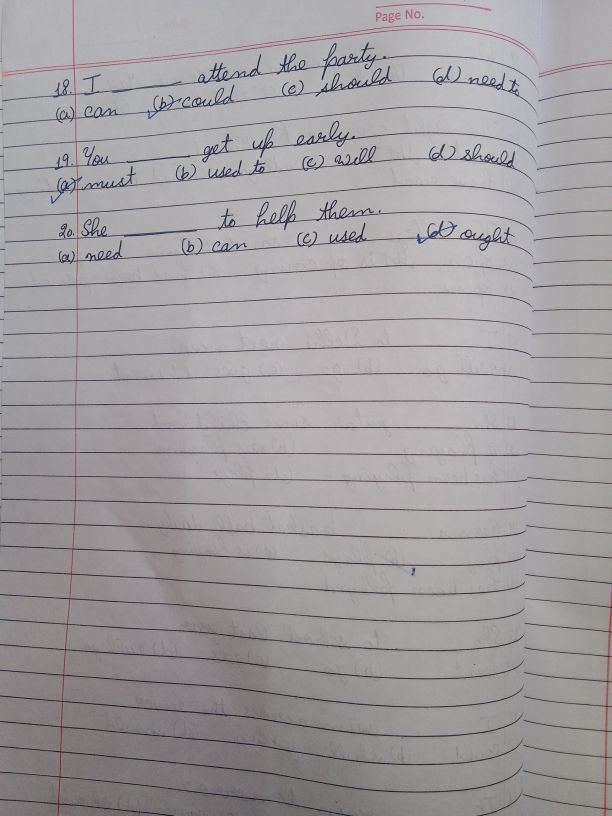 Page No.
18. I ______ attend the party.
(a) can (b) could (c) should (d) need to
19. You ______ get up early.
(a) must (b) used to (c) will (d) should
20. She ______ to help them.
(a) need (b) can (c) used (d) ought